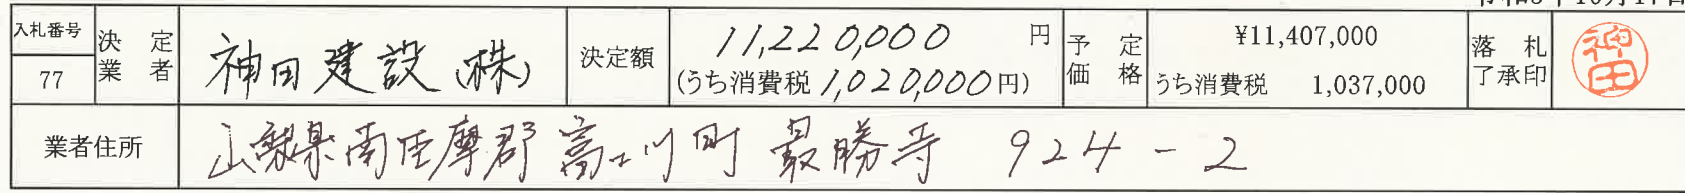 入札番号 77
決定業者 神田建設(株)
決定額 11,220,000円
(うち消費税 1,020,000円)
予定価格 ¥11,407,000
うち消費税 1,037,000
落札了承印 神田
業者住所 山梨県南巨摩郡富士川町最勝寺 924-2